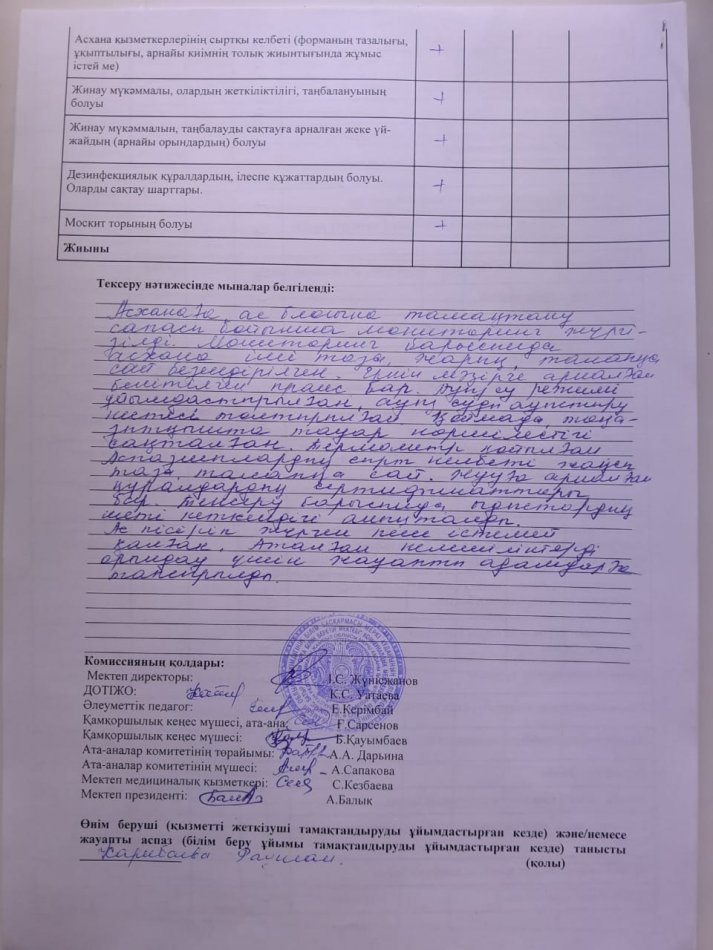 Асхана қызметкерлерінің сыртқы келбеті (форманың тазалығы,
ұқыптылығы, арнайы киімнің толық жиынтығында жұмыс
істей ме)
+
Жинау мүкәммалы, олардың жеткіліктілігі, таңбалануының
болуы
+
Жинау мүкәммалын, таңбалауды сақтауға арналған жеке үй-
жайдың (арнайы орындардың) болуы
+
Дезинфекциялық құралдардың, ілеспе құжаттардың болуы.
Оларды сақтау шарттары.
+
Москит торының болуы
+
Жиыны
Тексеру нәтижесінде мыналар белгіленді:
Асханаға, ас блогына тамақтану
сапасы бойынша мониторинг жүргі-
зілді. Мониторинг барысында
асхана іші таза, жарық, талапқа
сай безендірілген. мәзірге арналған
бекітілген прайс бар. Ауыз су режимі
ұйымдастырылған, ауыз суды ауыстыру
кестесі толтырылған. Қоймада, тоңа-
зытқышта тауар көршілестігі
сақталған. Термометр қойылған
Аспазшылардың сырт келбеті жақсы
таза, талапқа сай. Жууға арналған
құралдардың сертификаттары
бар. Тексеру барысында, ыдыстардың
шеті кеткендігі анықталды.
Ас пісіріп жүрген пеш істемей
қалған. Аталған кемшіліктерді
орындау үшін жауапты адамдарға
тапсырылды.
Комиссияның қолдары:
Мектеп директоры: І.С. Жүнісжанов
ДОТІЖО: К.С. Уатаева
Әлеуметтік педагог: Е.Керімбай
Қамқоршылық кеңес мүшесі, ата-ана: Ғ.Сарсенов
Қамқоршылық кеңес мүшесі: Б.Қауымбаев
Ата-аналар комитетінің төрайымы: А.А. Дарьина
Ата-аналар комитетінің мүшесі: А.Сапакова
Мектеп медициналық қызметкері: С.Кезбаева
Мектеп президенті: А.Балық
Өнім беруші (қызметті жеткізуші тамақтандыруды ұйымдастырған кезде) және/немесе
жауапты аспаз (білім беру ұйымы тамақтандыруды ұйымдастырған кезде) танысты
(қолы)